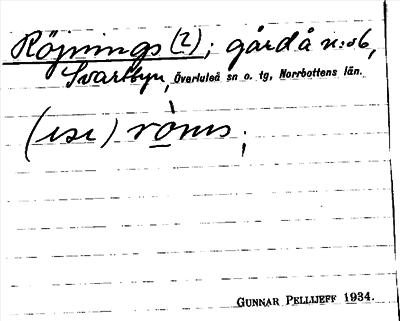 Röjnings (?); gård å n:o 6,
Svartbyn, Överluleå sn o. tg, Norrbottens län.
(ısı) rò̱ms;
GUNNAR PELLIJEFF 1934.